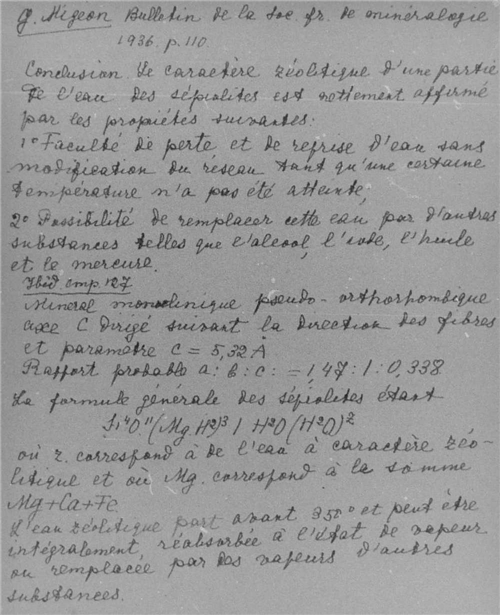 G. Migeon Bulletin de la Soc. fr. de minéralogie
1936. p. 110
Conclusion. Le caractère zéolitique d'une partie
de l'eau des sépiolites est nettement affirmé
par les propiétés suivantes:
1° Faculté de perte et de reprise d'eau sans
modification du réseau tant qu'une certaine
température n'a pas été atteinte,
2° Possibilité de remplacer cette eau par d'autres
substances telles que l'alcool, l'iode, l'huile
et le mercure.
Ibid cmp. 127
Mineral monoclinique pseudo-orthorhombique
axe C dirigé suivant la direction des fibres
et paramètre c = 5,32 Å
Rapport probable a: b: c: = 1 47: 1: 0,338
La formule générale des sépiolites étant
Si⁴O¹¹(Mg H²)³ 1 H²O (H²O)ᶻ
où z. correspond à de l'eau à caractère zéo-
litique et où Mg. correspond à la somme
Mg+Ca+Fe
L'eau zéolitique part avant 350° et peut être
intégralement, réabsorbée à l'état de vapeur
ou remplacée par des vapeurs d'autres
substances.